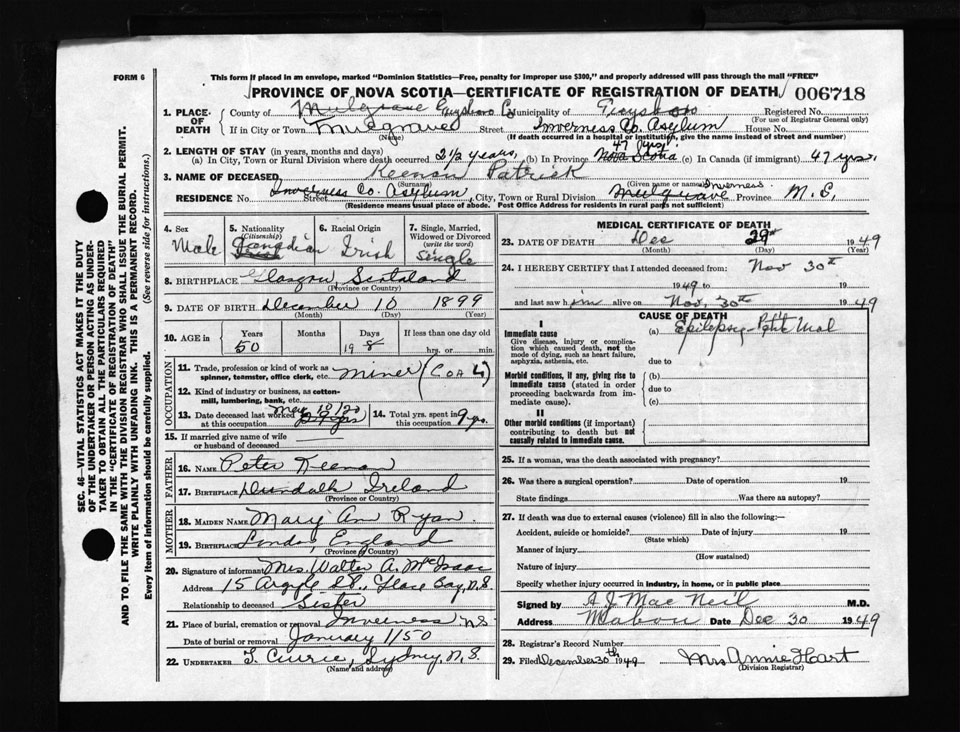 FORM 6
This form if placed in an envelope, marked "Dominion Statistics—Free, penalty for improper use $300," and properly addressed will pass through the mail "FREE"
PROVINCE OF NOVA SCOTIA—CERTIFICATE OF REGISTRATION OF DEATH 006718
1. PLACE OF DEATH County of Mulgrave Guysboro Co Municipality of Guysboro Registered No.
(For use of Registrar General only)
If in City or Town Mulgrave Street Inverness Co. Asylum House No.
(Name) (If death occurred in a hospital or institution, give the name instead of street and number)
2. LENGTH OF STAY (in years, months and days) 47 yrs.
(a) In City, Town or Rural Division where death occurred 2 1/2 years, (b) In Province Nova Scotia (c) In Canada (if immigrant) 47 yrs.
3. NAME OF DECEASED Keenan Patrick
(Surname) (Given name or names) Inverness
RESIDENCE No. Inverness Co. Asylum Street City, Town or Rural Division Mulgrave Province
(Residence means usual place of abode. Post Office Address for residents in rural parts not sufficient)
4. Sex Male
5. Nationality (Citizenship) Canadian
6. Racial Origin Irish
7. Single, Married, Widowed or Divorced (write the word) Single
8. BIRTHPLACE Glasgow, Scotland
(Province or Country)
9. DATE OF BIRTH December 10 1899
(Month) (Day) (Year)
10. AGE in Years 50 Months Days 19 If less than one day old hrs. or min.
OCCUPATION
11. Trade, profession or kind of work as spinner, teamster, office clerk, etc. Miner (Coal)
12. Kind of industry or business, as cotton-mill, lumbering, bank, etc.
13. Date deceased last worked at this occupation
14. Total yrs. spent in this occupation 9 yrs.
15. If married give name of wife or husband of deceased
FATHER
16. NAME Peter Keenan
17. BIRTHPLACE Dundalk Ireland
(Province or Country)
MOTHER
18. MAIDEN NAME Mary Ann Ryan
19. BIRTHPLACE London, England
(Province or Country)
20. Signature of informant Mrs. Walter A. McIsaac
Address 15 Argyle St., Glace Bay, N.S.
Relationship to deceased Sister
21. Place of burial, cremation or removal Inverness N.S.
Date of burial or removal January 1/50
22. UNDERTAKER T. Currie, Sydney, N.S.
(Name and address)
MEDICAL CERTIFICATE OF DEATH
23. DATE OF DEATH Dec 29th 1949
(Month) (Day) (Year)
24. I HEREBY CERTIFY that I attended deceased from: Nov 30th
1949 to 19
and last saw him alive on Nov. 30th 1949
CAUSE OF DEATH
I
Immediate cause
Give disease, injury or complication which caused death, not the mode of dying, such as heart failure, asphyxia, asthenia, etc.
(a) Epilepsy - Petit Mal
due to
Morbid conditions, if any, giving rise to immediate cause (stated in order proceeding backwards from immediate cause).
(b)
due to
(c)
II
Other morbid conditions (if important) contributing to death but not causally related to immediate cause.
25. If a woman, was the death associated with pregnancy?
26. Was there a surgical operation? Date of operation 19
State findings Was there an autopsy?
27. If death was due to external causes (violence) fill in also the following:—
Accident, suicide or homicide? Date of injury 19
(State which)
Manner of injury
(How sustained)
Nature of injury
Specify whether injury occurred in industry, in home, or in public place
Signed by A J MacNeil M.D.
Address Mabou Date Dec 30 1949
28. Registrar's Record Number
29. Filed December 30th 1949 Mrs Annie Hart
(Division Registrar)
SEC. 46—VITAL STATISTICS ACT MAKES IT THE DUTY
OF THE UNDERTAKER OR PERSON ACTING AS UNDER-
TAKER TO OBTAIN ALL THE PARTICULARS REQUIRED
IN THE "CERTIFICATE OF REGISTRATION OF DEATH"
AND TO FILE THE SAME WITH THE DIVISION REGISTRAR WHO SHALL ISSUE THE BURIAL PERMIT.
WRITE PLAINLY WITH UNFADING INK. THIS IS A PERMANENT RECORD.
Every item of information should be carefully supplied. (See reverse side for instructions.)